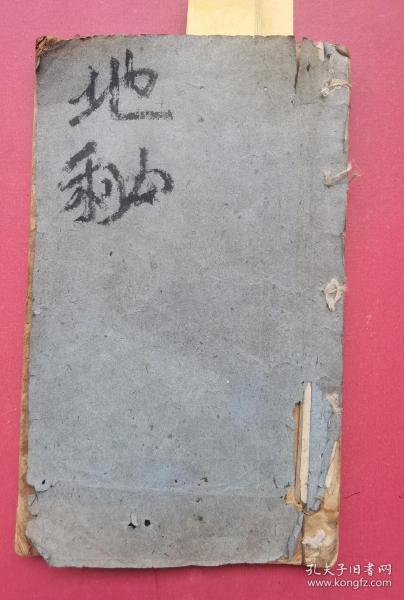 地
孔夫子旧书网
www.kongfz.com